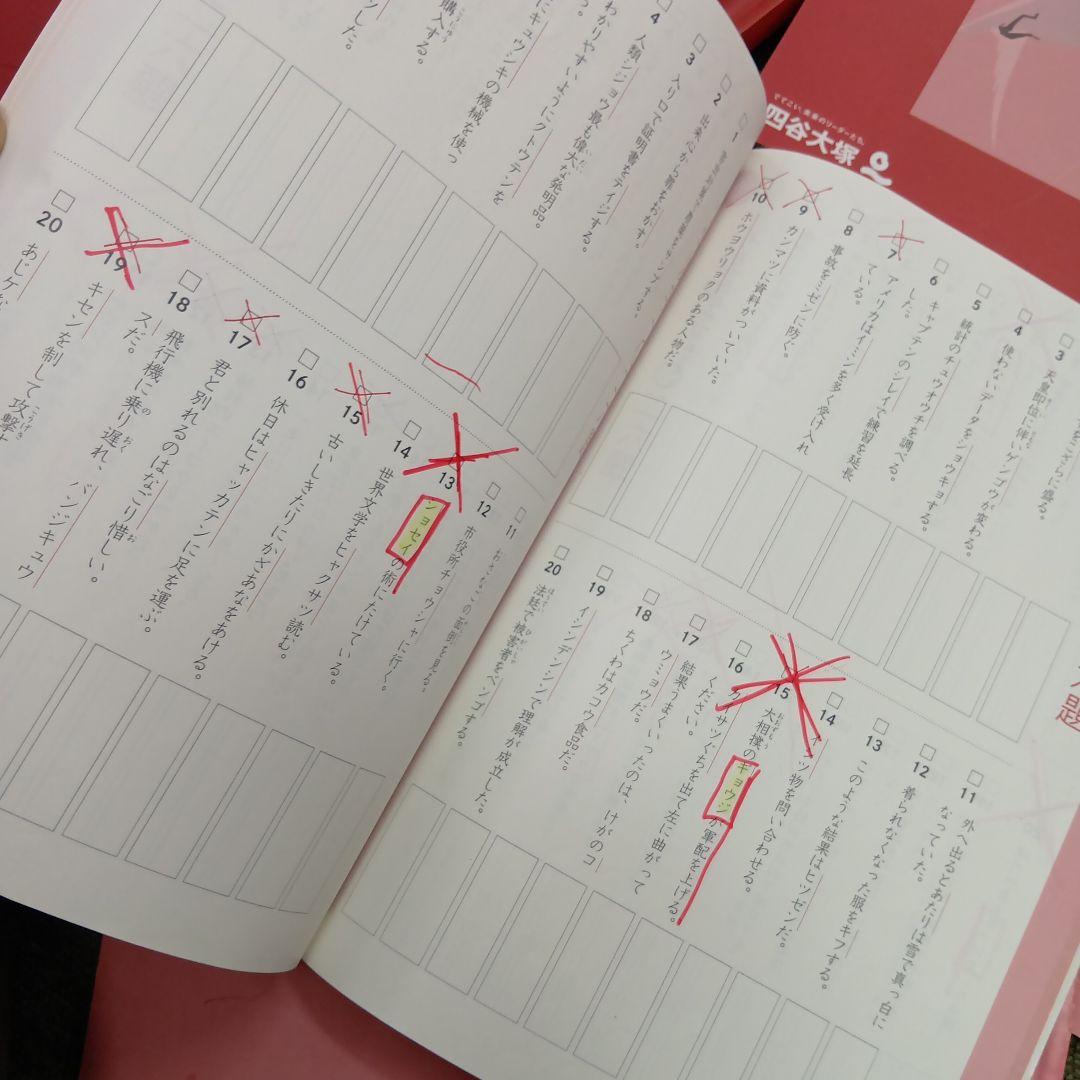 でてこい、未来のリーダーたち。
四谷大塚
3 天皇即位に伴いゲンゴウが変わる。
4 使わないデータをショウキョする。
5 統計のチュウオウチを調べる。
6 キャプテンのシレイで練習を延長
した。
7 アメリカはイミンを多く受け入れ
ている。
8 事故をミゼンに防ぐ。
9 カンマツに資料がついていた。
10 ホウヨウリョクのある人物だ。
11 外へ出るとあたりは雪で真っ白に
なっていた。
12 着られなくなった服をキフする。
13 このような結果はヒツゼンだ。
14 物を問い合わせる。
15 大相撲のギョウジが軍配を上げる。
おおずもう
16 カイサツぐちを出て左に曲がって
ください。
17 結果うまくいったのは、けがのコ
ウミョウだ。
18 ちくわはカコウ食品だ。
19 イシンデンシンで理解が成立した。
20 法廷で被害者をベンゴする。
ほうてい ひがいしゃ
題
1
2 出来心から罪をおかす。
3 入り口で証明書をテイジする。
4 人類シジョウ最も偉大な発明品。
わかりやすいようにクトウテンを
キュウシキの機械を使っ
購入する。
こうにゅう
11 おさなごの面倒を見る。
12 市役所チョウシャに行く。
13 ショセイの術にたけている。
14 世界文学をヒャクサツ読む。
15 古いしきたりにかざあなをあける。
16 休日はヒャッカテンに足を運ぶ。
17 君と別れるのはなごり惜しい。
お
18 飛行機に乗り遅れ、バンジキュウ
の おく
スだ。
19 キセンを制して攻撃
こうげき
20 あじ